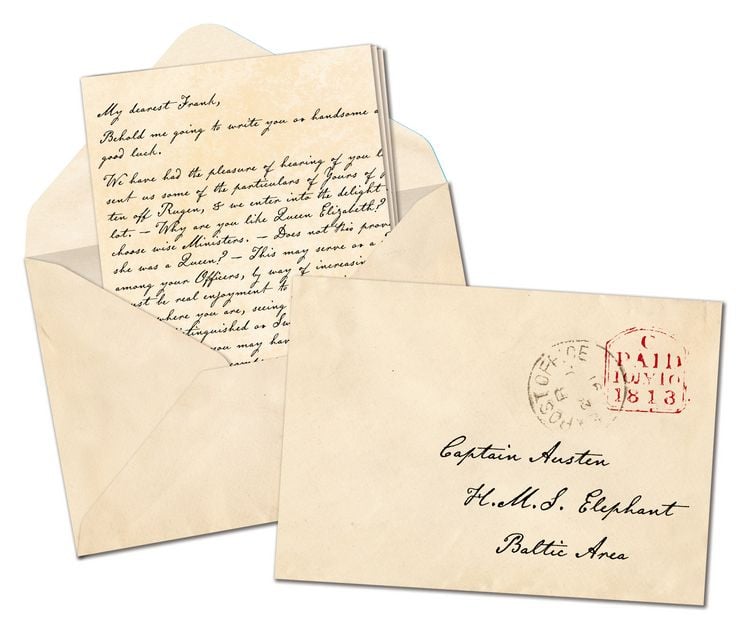 My dearest Frank,
Behold me going to write you as handsome a
good luck.
We have had the pleasure of hearing of you l
sent us some of the particulars of Yours of
ten off Rugen, & we enter into the delight
lot. — Why are you like Queen Elizabeth?
choose wise Ministers. — Does not this prov
she was a Queen? — This may serve as a
among your Officers, by way of increasin
ust be real enjoyment to
where you are, seeing
tinguished as Sw
you may hav
POST OFFICE
C
PAID
1813
Captain Austen
H.M.S. Elephant
Baltic Area